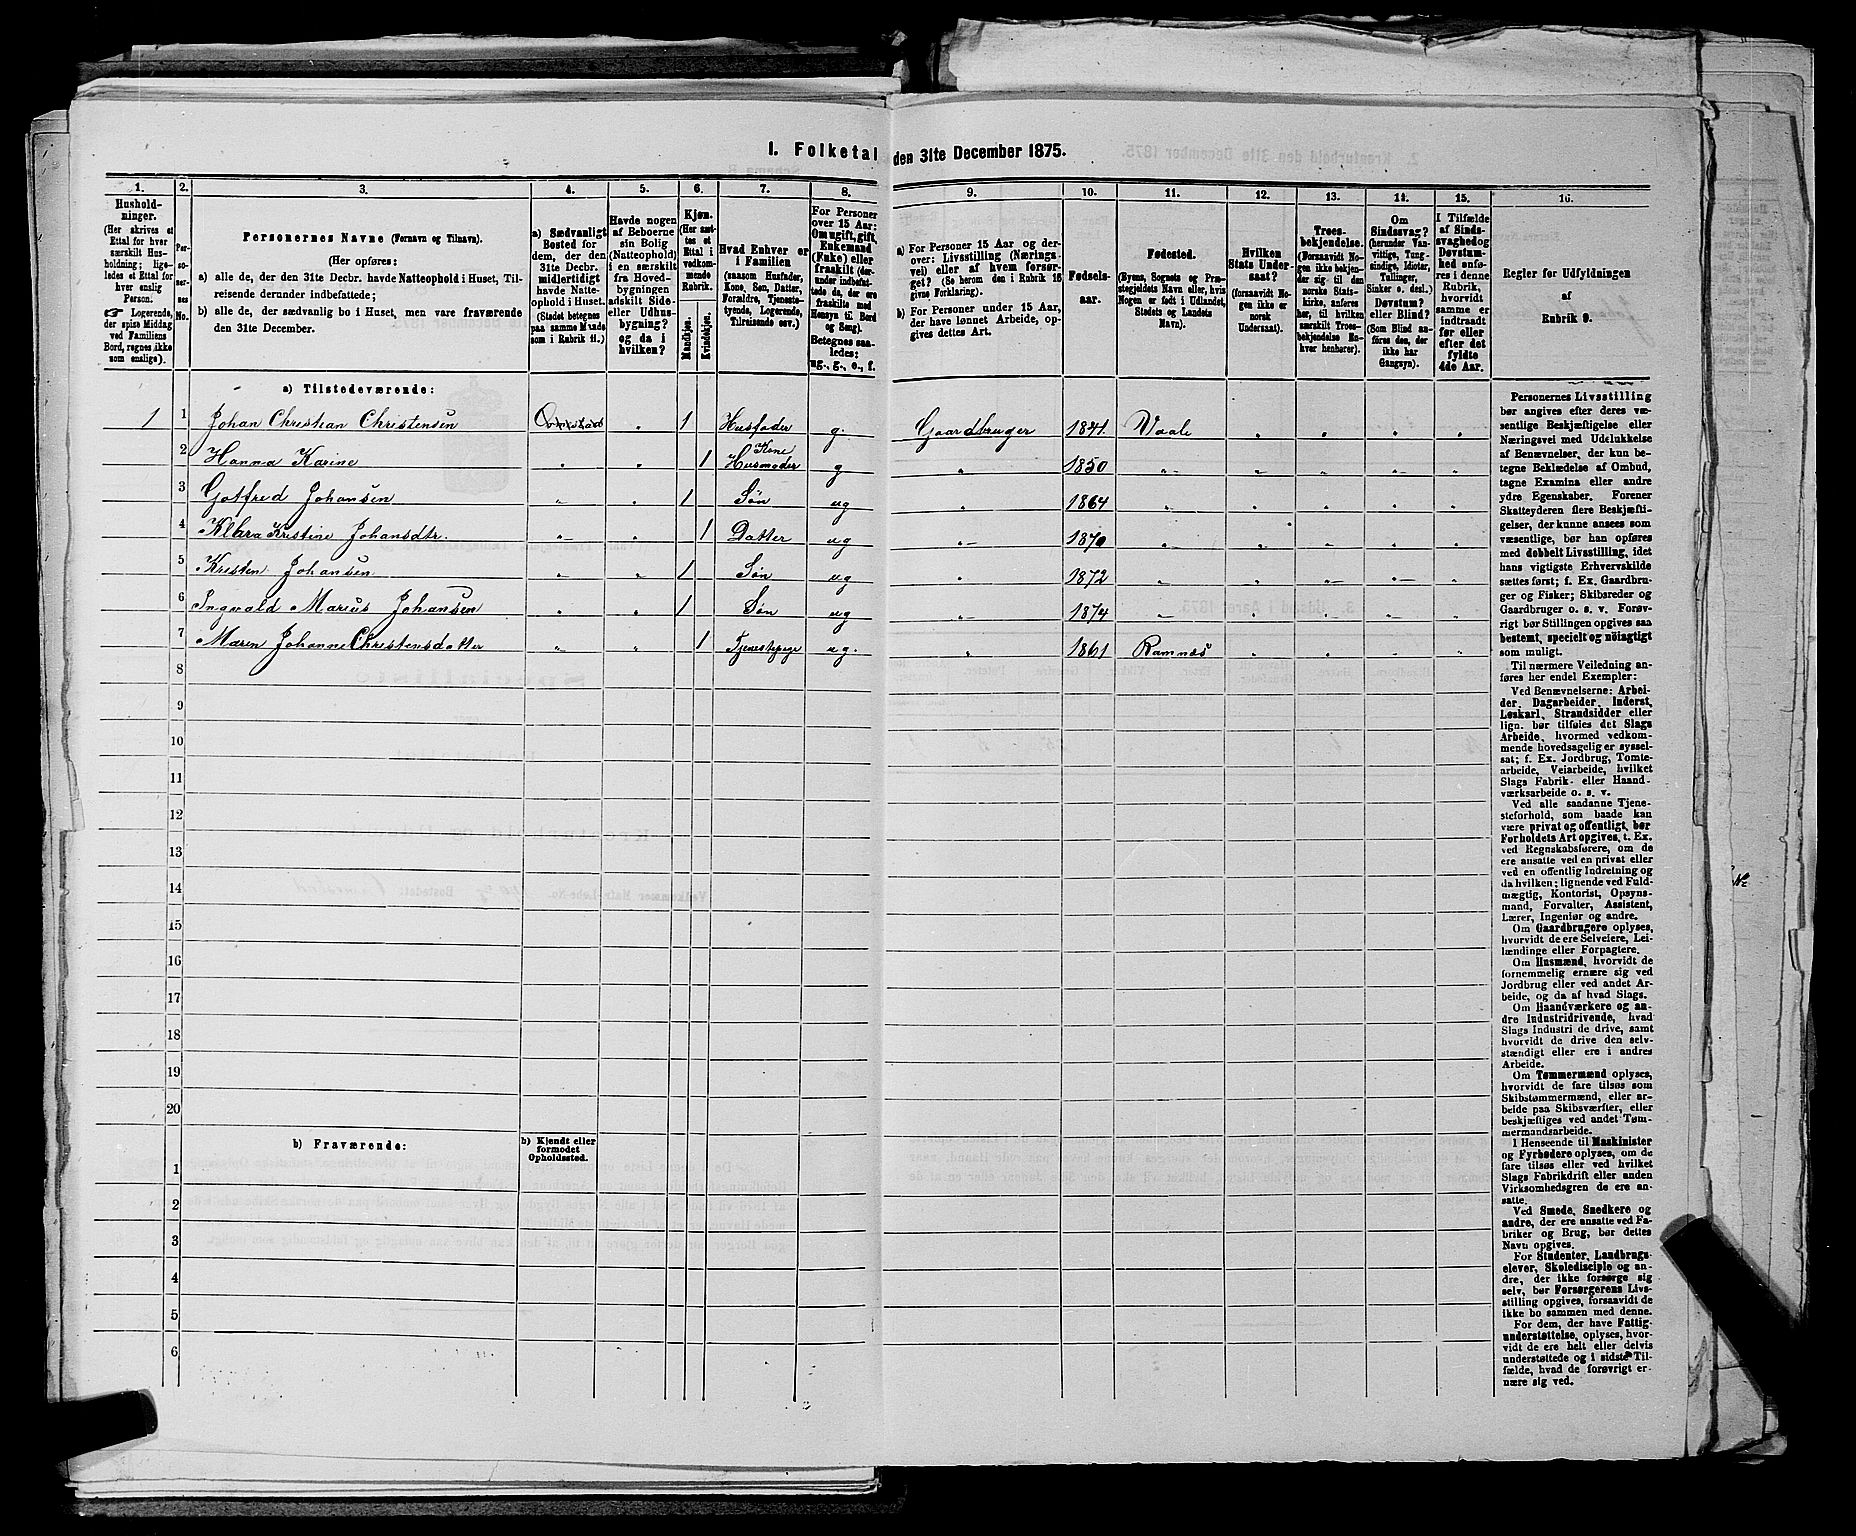 I. Folketal den 31te December 1875.
1. 2. 3. 4. 5. 6. 7. 8. 9. 10. 11. 12. 13. 14. 15. 16.
Husholdninger.
(Her skrives et
Ettal for hver
særskilt Husholdning; ligeledes
et Ettal for
hver enslig
Person.
☞ Logerende,
der spise Middag
ved Familiens
Bord, regnes ikke
som enslige).
Personernes No.
Personernes Navne (Fornavn og Tilnavn).
(Her opføres:
a) alle de, der den 31te Decbr. havde Natteophold i Huset, Tilreisende derunder indbefattede;
b) alle de, der sædvanlig bo i Huset, men vare fraværende
den 31te December.
a) Sædvanligt
Bosted for
dem, der den
31te Decbr.
midlertidigt
havde Natteophold i Huset.
(Stedet betegnes
paa samme Maade
som i Rubrik 11.)
Havde nogen
af Beboerne
sin Bolig
(Natteophold)
i en særskilt
fra Hovedbygningen
adskilt Side-
eller Udhusbygning?
og da i
hvilken?
Kjøn.
(Her sættes et
Ettal i
vedkommende
Rubrik.
Mandkjøn.
Kvindekjøn.
Hvad Enhver er
i Familien
(saasom Husfader,
Kone, Søn, Datter,
Forældre, Tjenestetyende, Logerende,
Tilreisende osv.)
For Personer
over 15 Aar:
Om ugift, gift,
Enkemand
(Enke) eller
fraskilt (derunder indbefattede
de, der ere
fraskilte med
Hensyn til Bord
og Seng).
Betegnes saaledes:
ug., g., e., f.
a) For Personer 15 Aar og derover: Livsstilling (Næringsvei) eller af hvem forsørget? (Se herom den i Rubrik 16
givne Forklaring).
b) For Personer under 15 Aar,
der have lønnet Arbeide, opgives dettes Art.
Fødselsaar.
Fødested.
(Byens, Sognets og Præstegjeldets Navn eller, hvis
Nogen er født i Udlandet,
Stedets og Landets
Navn).
Hvilken
Stats Undersaat?
(forsaavidt Nogen ikke er
norsk
Undersaat).
Troesbekjendelse.
(Forsaavidt Nogen ikke bekjender sig til den
norske Statskirke, anføres
her, til hvilken
særskilt Troesbekjendelse Enhver henhører).
Om
Sindssvag?
(herunder Vanvittige, Tungsindige, Idioter,
Tullinger,
Sinker o. desl.)
Døvstum?
eller Blind?
(Som Blind anføres den, der
ikke har
Gangsyn).
I Tilfælde
af Sindssvaghed og
Døvstumhed anføres i denne
Rubrik,
hvorvidt
samme er
indtraadt
før eller
efter det
fyldte
4de Aar.
Regler for Udfyldningen
af
Rubrik 9.
a) Tilstedeværende:
1 1 Johan Christian Christensen 1 Husfader g. Gaardbruger 1841. Vaale
2 Hanna Karine 1 Kone Husmoder g 1850
3 Gotfred Johansen 1 Søn ug 1864
4 Klara Kristine Johansdtr. 1 Datter ug 1870
5 Kristen Johansen 1 Søn ug 1872
6 Ingvald Marius Johansen 1 Søn ug 1874
7 Maren Johanne Christensdatter 1 Tjenestepige ug. 1861 Ramnæs
8
9
10
11
12
13
14
15
16
17
18
19
20
b) Fraværende:
b) Kjendt eller
formodet
Opholdssted.
1
2
3
4
5
6
Personernes Livsstilling
bør angives efter deres væsentlige Beskjæftigelse eller
Næringsvei med Udelukkelse
af Benævnelser, der kun betegne Beklædelse af Ombud,
tagne Examina eller andre
ydre Egenskaber. Forener
Skatteyderen flere Beskjæftigelser, der kunne ansees som
væsentlige, bør han opføres
med dobbelt Livsstilling, idet
hans vigtigste Erhvervskilde
sættes først; f. Ex. Gaardbruger og Fisker; Skibsreder og
Gaardbruger o. s. v. Forøvrigt bør Stillingen opgives saa
bestemt, specielt og nøiagtigt
som muligt.
Til nærmere Veiledning anføres her endel Exempler:
Ved Benævnelserne: Arbeider, Dagarbeider, Inderst,
Løskarl, Strandsidder eller
lign. bør tilføies det Slags
Arbeide, hvormed vedkommende hovedsagelig er sysselsat; f. Ex. Jordbrug, Tomtearbeide, Veiarbeide, hvilket
Slags Fabrik- eller Haandværksarbeide o. s. v.
Ved alle saadanne Tjenesteforhold, som baade kan
være privat og offentligt, bør
Forholdets Art opgives, t. Ex.
ved Regnskabsførere, om de
ere ansatte ved en privat eller
ved en offentlig Indretning og
da hvilken; lignende ved Fuldmægtig, Kontorist, Opsynsmand, Forvalter, Assistent,
Lærer, Ingeniør og andre.
Om Gaardbrugere oplyses,
hvorvidt de ere Selveiere, Leilændinge eller Forpagtere.
Om Husmænd, hvorvidt de
fornemmelig ernære sig ved
Jordbrug eller ved andet Arbeide, og da af hvad Slags.
Om Haandværkere og andre Industridrivende, hvad
Slags Industri de drive, samt
hvorvidt de drive den selvstændigt eller ere i andres
Arbeide.
Om Tømmermænd oplyses,
hvorvidt de fare tilsøs som
Skibstømmermænd, eller arbeide paa Skibsværfter, eller
beskjæftiges ved andet Tømmermandsarbeide.
I Henseende til Maskinister
og Fyrbødere oplyses, om de
fare tilsøs eller ved hvilket
Slags Fabrikdrift eller anden
Virksomhedsgren de ere ansatte.
Ved Smede, Snedkere og
andre, der ere ansatte ved Fabriker og Brug, bør dettes
Navn opgives.
For Studenter, Landbrugselever, Skoledisciple og andre, der ikke forsørge sig
selv, bør Forsørgerens Livsstilling opgives, forsaavidt de
ikke bo sammen med denne.
For dem, der have Fattigunderstøttelse, oplyses, hvorvidt de ere helt eller delvis
understøttede og i sidste Tilfælde, hvad de forøvrigt ernære sig ved.